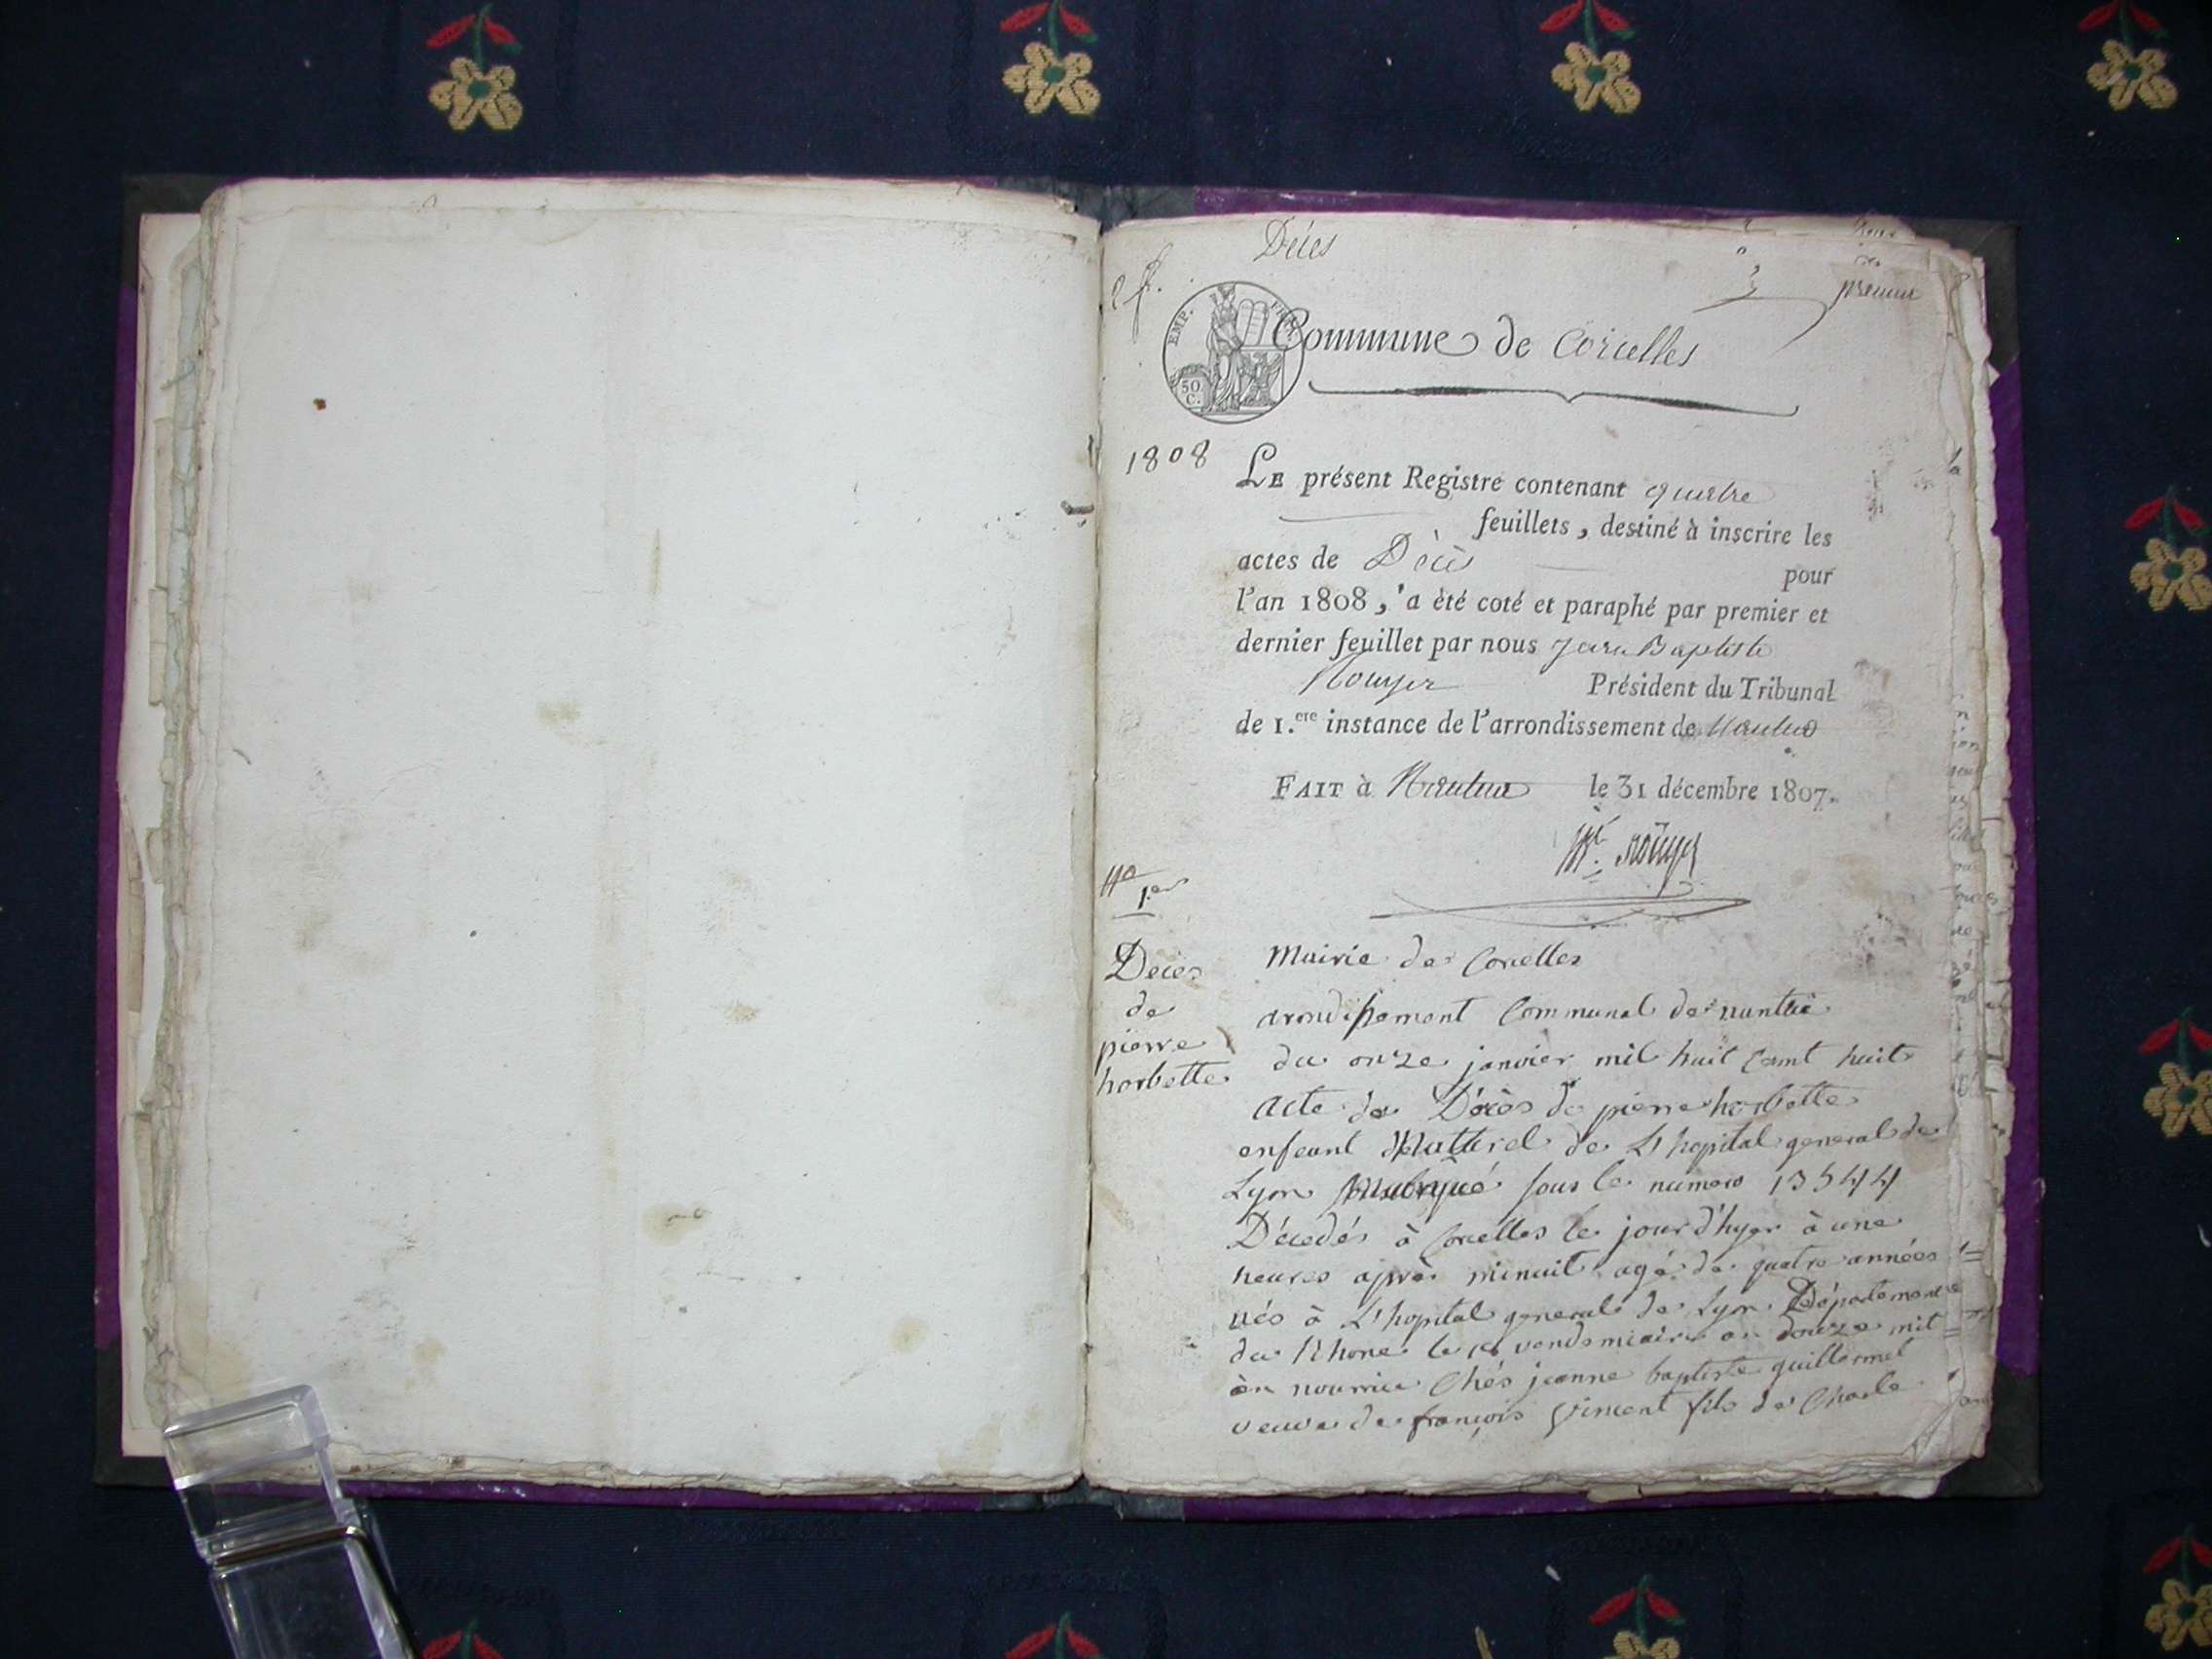 Décès
2 f.
premier
EMP. FRAN.
50 C.
Commune de Corcelles
1808
LE présent Registre contenant quatre
feuillets, destiné à inscrire les
actes de Décès pour
l'an 1808, a été coté et paraphé par premier et
dernier feuillet par nous Jean Baptiste
Rouyer Président du Tribunal
de 1.ere instance de l'arrondissement de Nantua
FAIT à Nantua le 31 décembre 1807.
Rouyer
No
1.er
Décès
de
pierre
horbette
Mairie de Corcelles
arondissement Communal de nantua
du onze janvier mil huit Cent huit
acte de Décès de pierre horbette
enfant de L'hopital general de
Lyon sous le numero 13544
Décedés à Corcelles le jour d'hyer à une
heures après minuit agé de quatre années
nés à L'hopital general de Lyon Département
du Rhone le vendemiaire an douze mit
èn nourrice Chés jeanne baptiste guillermet
veuve de françois vincent fils de Charle